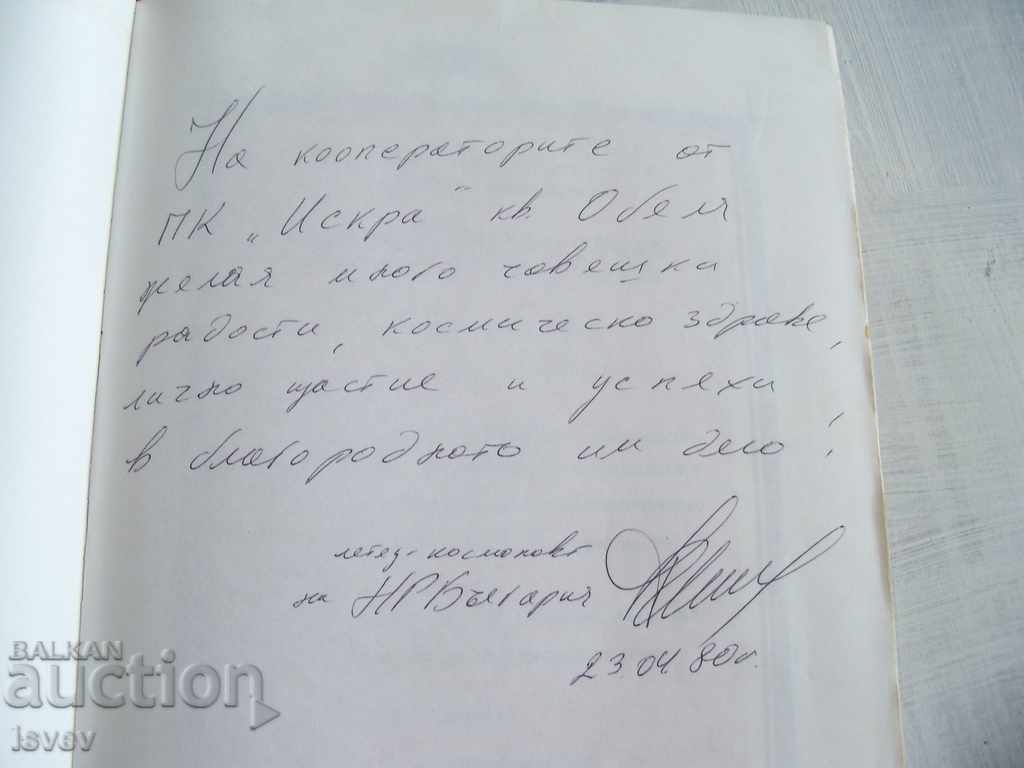 На кооператорите от
ПК „Искра" кв. Обеля
желая много човешки
радости, космическо здраве,
лично щастие и успехи
в благородното им дело!
летец-космонавт
на НРБългария
23.04.80г.
BALKAN
auction
isvev